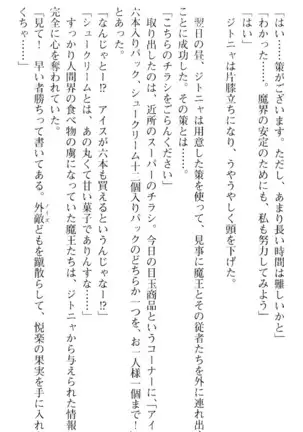 「はい……策がございます。ただ、あまり長い時間は難しいかと」
「わかった……。魔界の安定のためにも、私も努力してみよう」
「はい」
ジトニャは片膝立ちになり、うやうやしく頭を下げた。
翌日の昼、ジトニャは用意した策を使って、見事に魔王とその従者たちを外に連れ出す
ことに成功した。その策とは……。
「こちらのチラシをごらんください」
取り出したのは、近所のスーパーのチラシ。今日の目玉商品というコーナーに、「アイス
六本入りパック、シュークリーム十二個入りパックのどちらか一つを、お一人様一個まで！
「なんじゃとー!? アイスが六本も買えるというんじゃなー!?
「シュークリームとは、あの丸くて甘い菓子でありんすな……」
すっかり人間界の食べ物の虜になっていた魔王たちは、ジトニャから与えられた情報
完全に心を奪われていた。
「見て！ 早い者勝ちって書いてある。外敵どもを蹴散らして、悦楽の果実を手に入れ
ノイズ
くちゃ……」